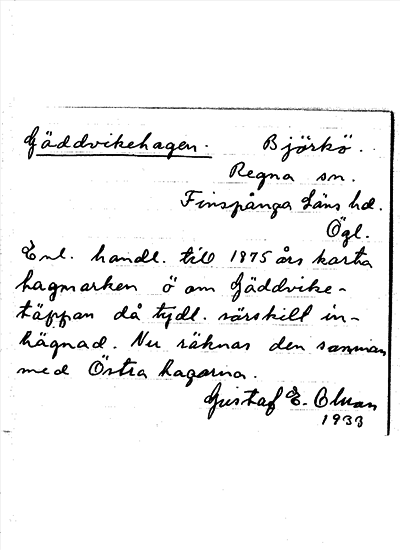 Gäddvikehagen. Björkö.
Regna sn.
Finspånga Läns hd.
Ögl.
Enl. handl. till 1875 års karta
hagmarken ö om Gäddvike-
täppan då tydl. särskilt in-
hägnad. Nu räknas den samman
med Östra hagarna.
Gustaf E. Olman
1933